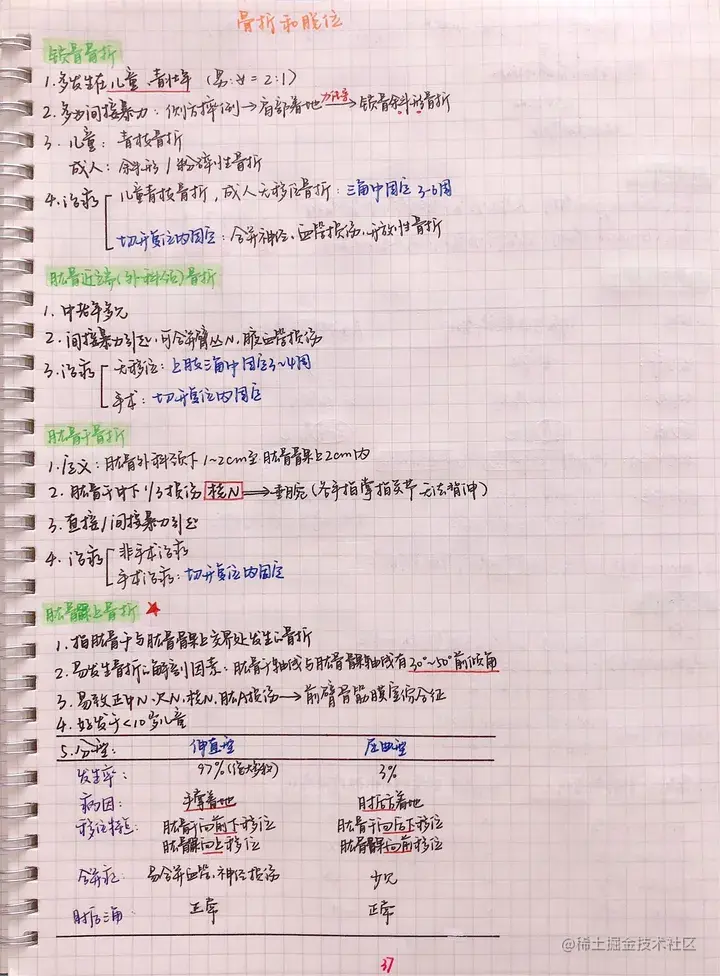 骨折和脱位
锁骨骨折
1.多发生在儿童、青壮年 (男:女=2:1)
2.多为间接暴力:侧方摔倒→肩部着地 力传导→锁骨斜形骨折
3.儿童:青枝骨折
成人:斜形/粉碎性骨折
4.治疗 儿童青枝骨折,成人无移位骨折:三角巾固定3-6周
切开复位内固定:合并神经、血管损伤,开放性骨折
肱骨近端(外科颈)骨折
1.中老年多见
2.间接暴力引起,可合并臂丛N,腋血管损伤
3.治疗 无移位:上肢三角巾固定3~4周
手术:切开复位内固定
肱骨干骨折
1.定义:肱骨外科颈下1~2cm至肱骨髁上2cm内
2.肱骨干中下1/3损伤桡N⟹垂腕(各手指掌指关节无法背伸)
3.直接/间接暴力引起
4.治疗 非手术治疗
手术治疗:切开复位内固定
肱骨髁上骨折 ★
1.指肱骨干与肱骨髁上交界处发生の骨折
2.易发生骨折の解剖因素:肱骨干轴线与肱骨髁轴线有30°~50°前倾角
3.易致正中N、尺N、桡N、肱A损伤→前臂骨筋膜室综合征
4.好发于<10岁儿童
5.分型: 伸直型 屈曲型
发生率: 97%(绝大多数) 3%
病因: 手撑着地 肘后方着地
移位特点: 肱骨干向前下移位 肱骨干向后下移位
肱骨髁向上移位 肱骨髁向前移位
合并症: 易合并血管、神经损伤 少见
肘后三角 正常 正常
37
@稀土掘金技术社区